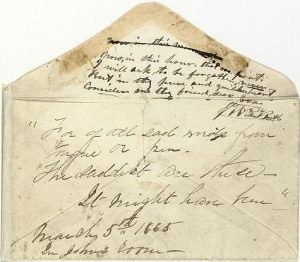 now in this
Now, in this hour, that we part,
I will ask to be forgotten never
But, in thy pure and guileless heart,
Consider me thy friend, dear
Ever
J. W. Booth
"For of all sad words from
tongue or pen.
The saddest are these—
It might have been"
March 5th 1865
In John's room—